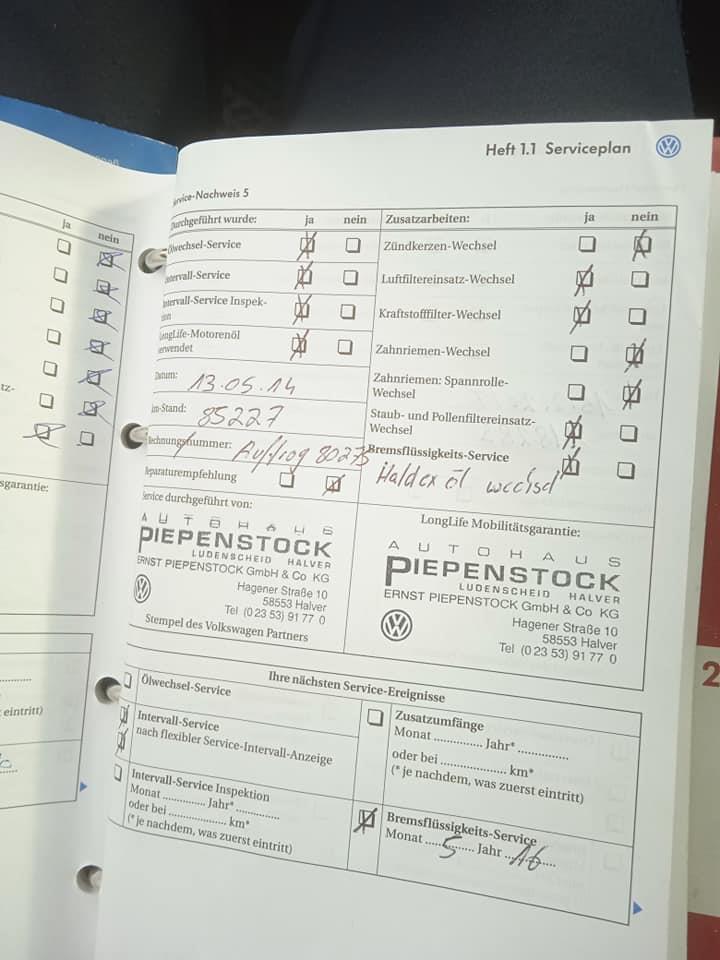 Heft 1.1 Serviceplan
Service-Nachweis 5
ja nein
Durchgeführt wurde: ja nein
Ölwechsel-Service
Intervall-Service
Intervall-Service Inspek-
LongLife-Motorenöl
verwendet
Datum: 13.05.14
km-Stand: 85227
Rechnungsnummer: Auftrag 80275
Reparaturempfehlung
Zusatzarbeiten: ja nein
Zündkerzen-Wechsel
Luftfiltereinsatz-Wechsel
Kraftstofffilter-Wechsel
Zahnriemen-Wechsel
Zahnriemen: Spannrolle-
Wechsel
Staub- und Pollenfiltereinsatz-
Wechsel
Bremsflüssigkeits-Service
Haldex öl wechsel
Service durchgeführt von:
AUTOHAUS
PIEPENSTOCK
LÜDENSCHEID HALVER
ERNST PIEPENSTOCK GmbH & Co KG
Hagener Straße 10
58553 Halver
Tel (0 23 53) 91 77 0
Stempel des Volkswagen Partners
LongLife Mobilitätsgarantie:
AUTOHAUS
PIEPENSTOCK
LÜDENSCHEID HALVER
ERNST PIEPENSTOCK GmbH & Co KG
Hagener Straße 10
58553 Halver
Tel (0 23 53) 91 77 0
Ihre nächsten Service-Ereignisse
Ölwechsel-Service
Intervall-Service
nach flexibler Service-Intervall-Anzeige
Intervall-Service Inspektion
Monat ............. Jahr* .............
oder bei .................... km*
(* je nachdem, was zuerst eintritt)
Zusatzumfänge
Monat ............. Jahr* .............
oder bei .................... km*
(* je nachdem, was zuerst eintritt)
Bremsflüssigkeits-Service
Monat ....5.... Jahr ....16....
tz-
sgarantie:
eintritt)
2